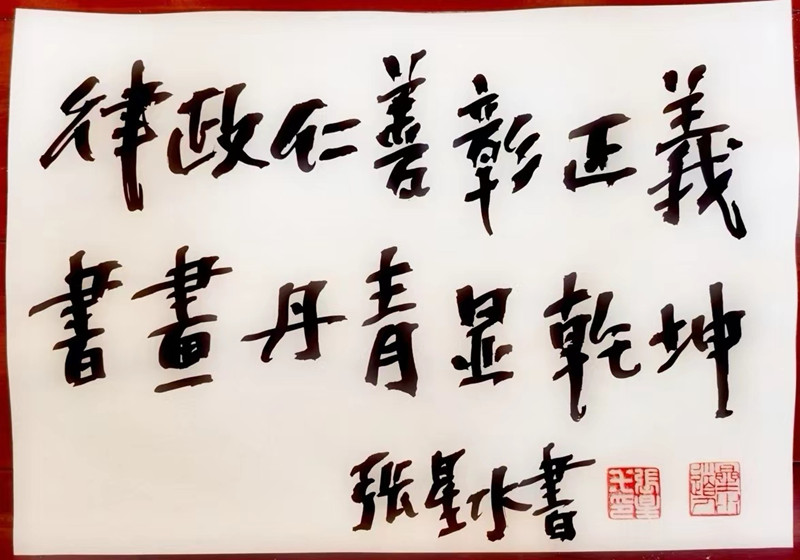 律政仁善彰正義
書畫丹青显乾坤
張星水書